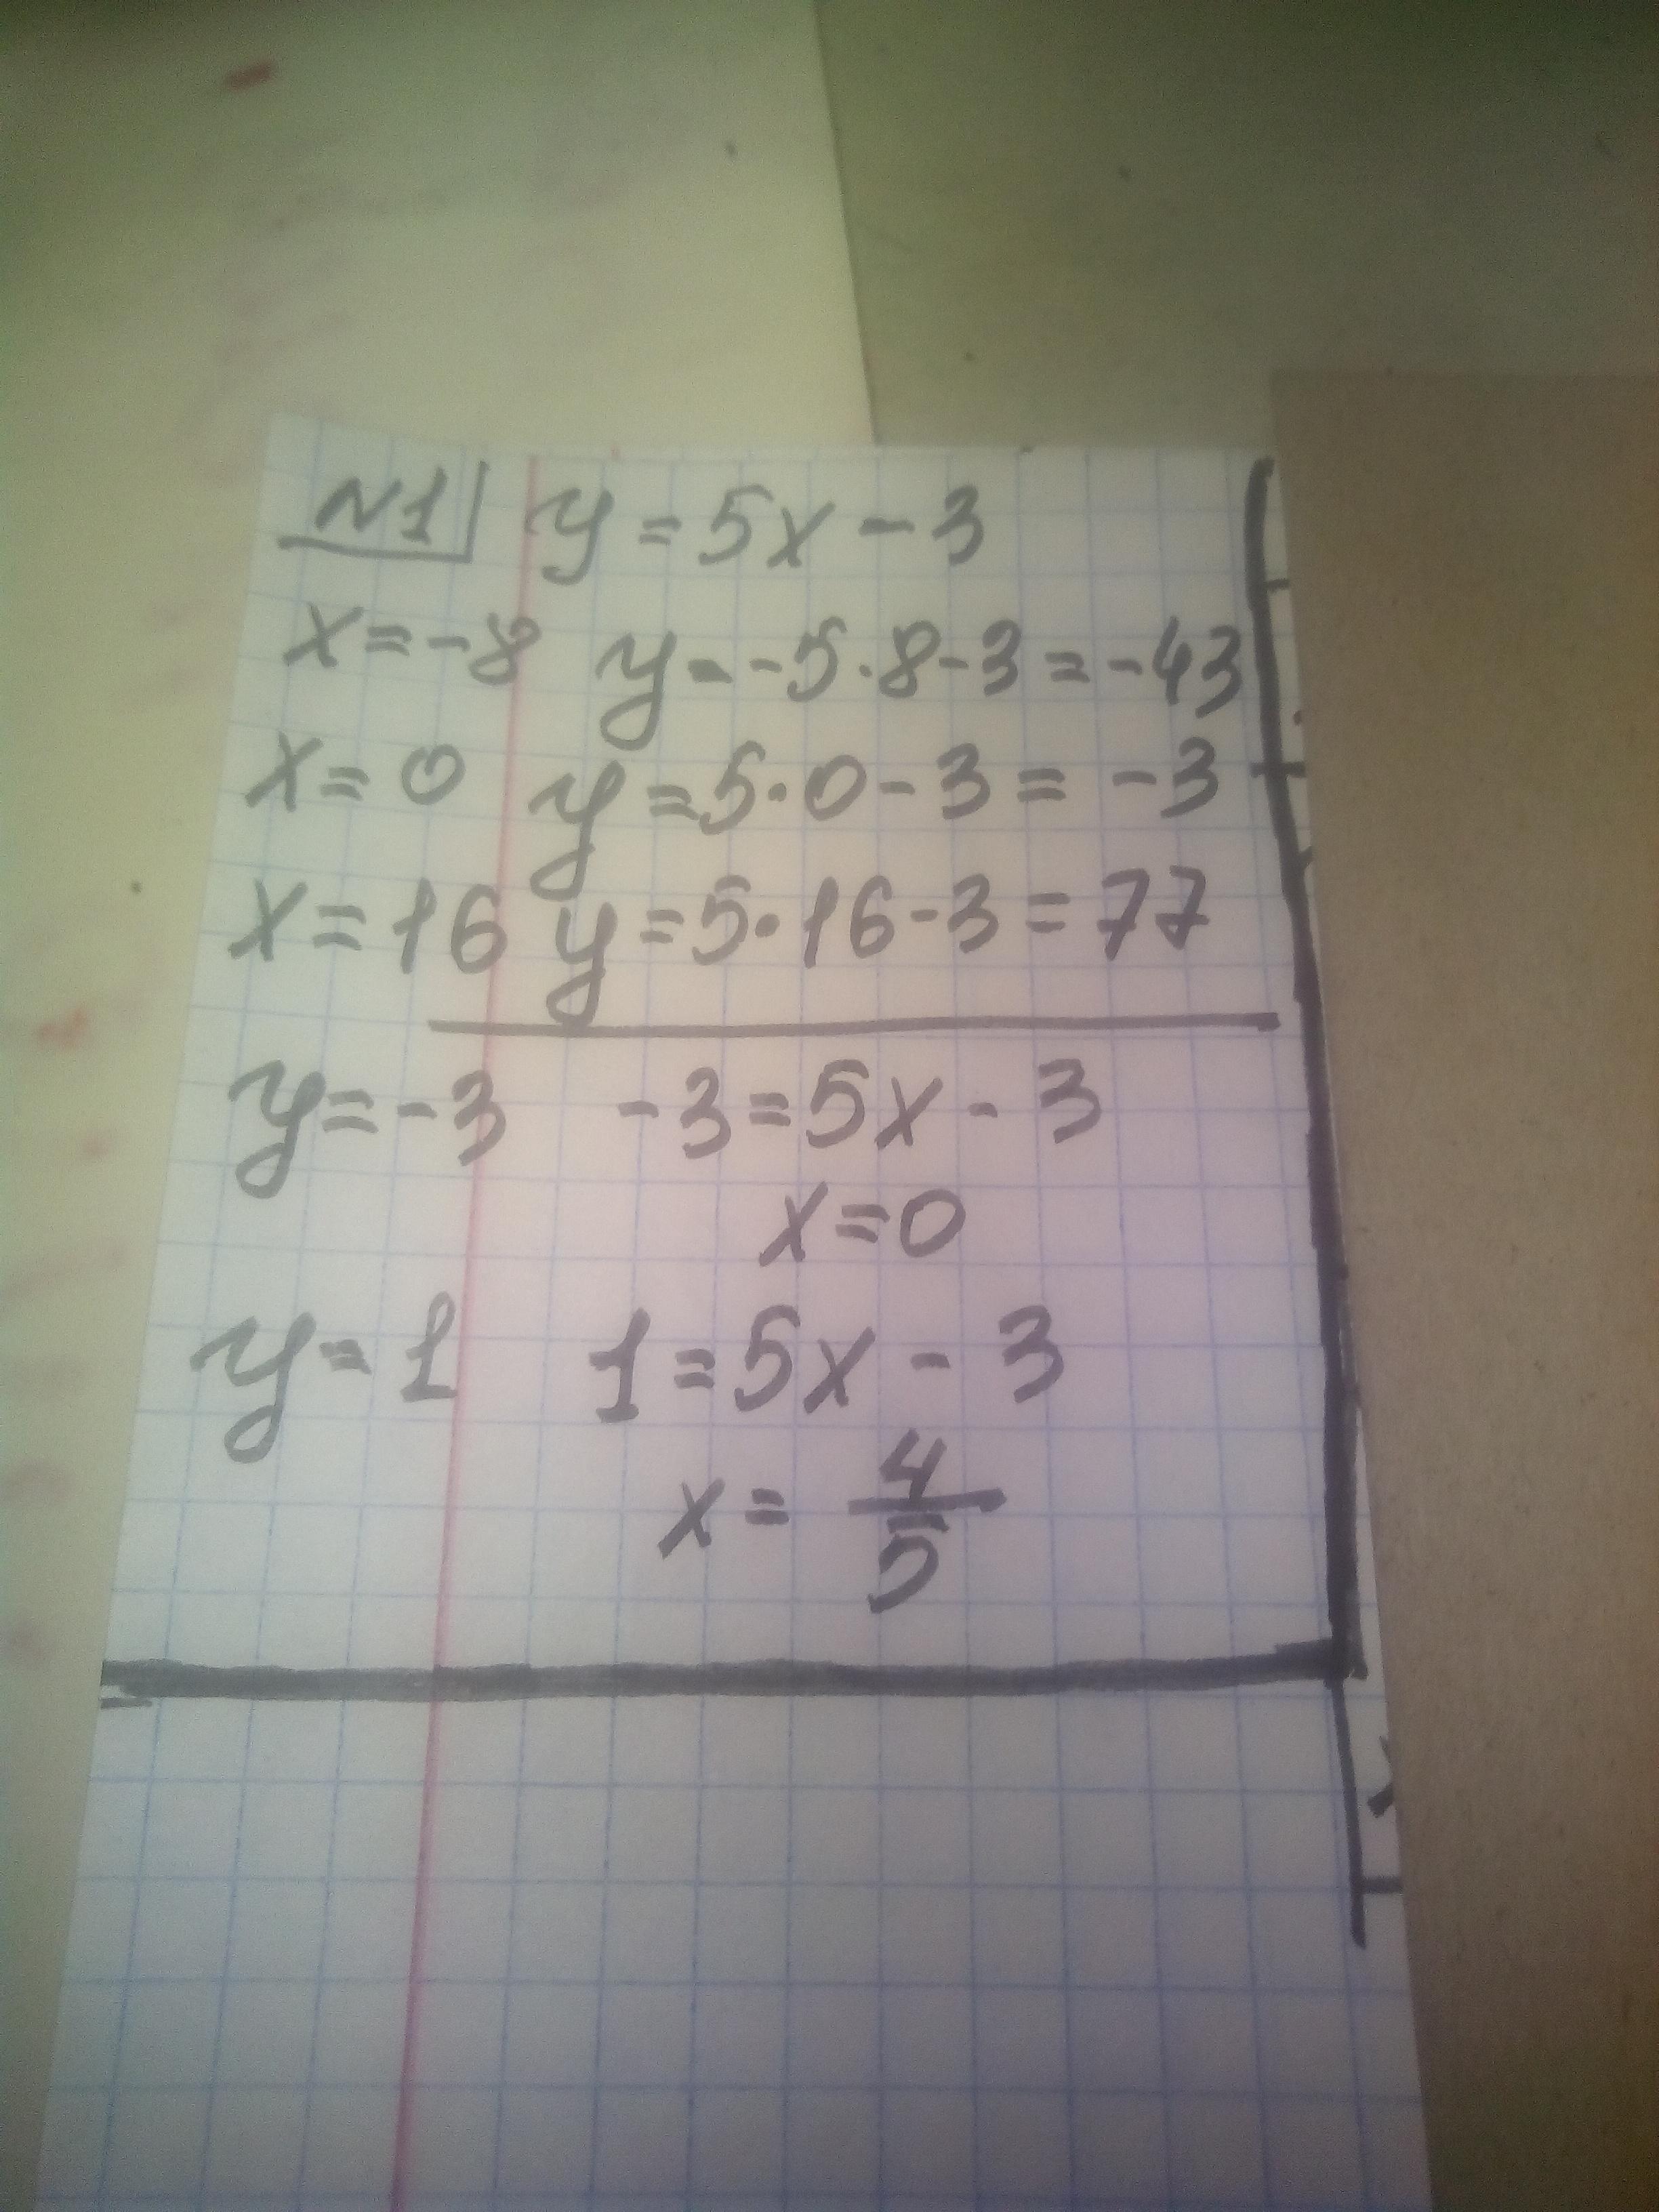 N1 y = 5x - 3
x = -8 y = -5·8-3 = -43
x = 0 y = 5·0-3 = -3
x = 16 y = 5·16-3 = 77
y = -3 -3 = 5x - 3
x = 0
y = 1 1 = 5x - 3
x = 4/5